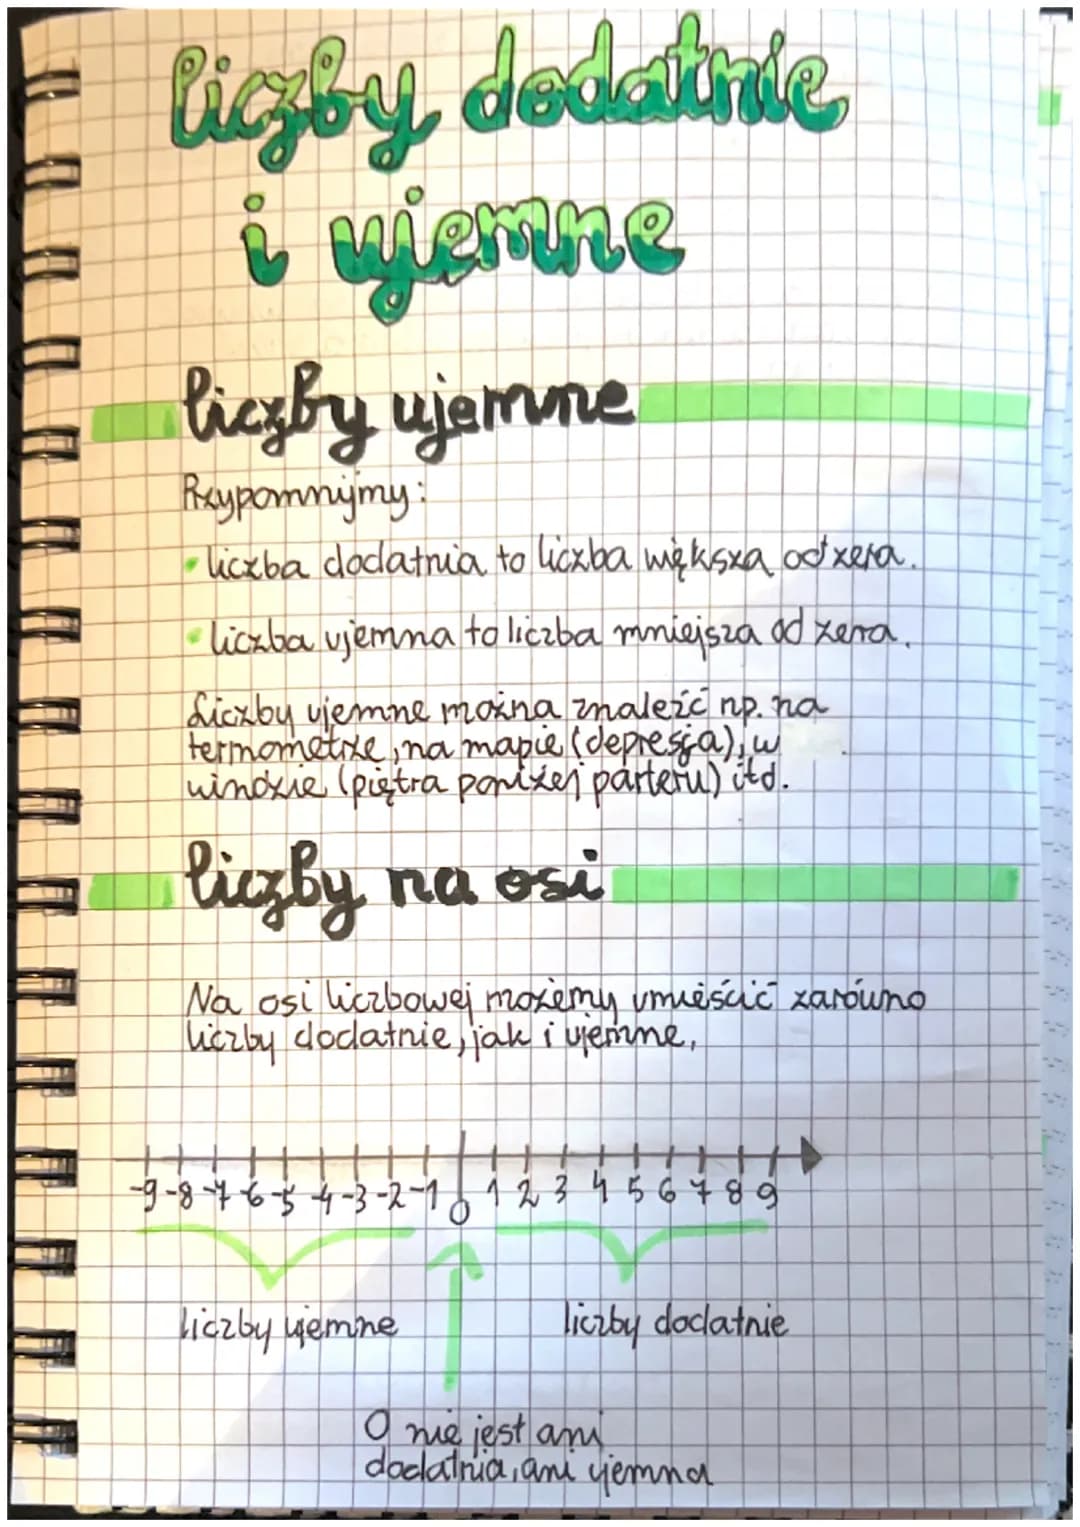 liczby dodatnie
i ujemne
liczby ujemne
Przypomnijmy:
• liczba dodatnia to liczba większa od zera.
• liczba ujemna to liczba mniejsza od zera.
Liczby ujemne można znaleźć np. na
termometrze, na mapie (depresja), w
windzie (piętra poniżej parteru) itd.
liczby na osi
Na osi liczbowej możemy umieścić zarówno
liczby dodatnie, jak i ujemne.
-9 -8 -7 -6 -5 -4 -3 -2 -1 0 1 2 3 4 5 6 7 8 9
liczby ujemne liczby dodatnie
0 nie jest ani
dodatnia, ani ujemna